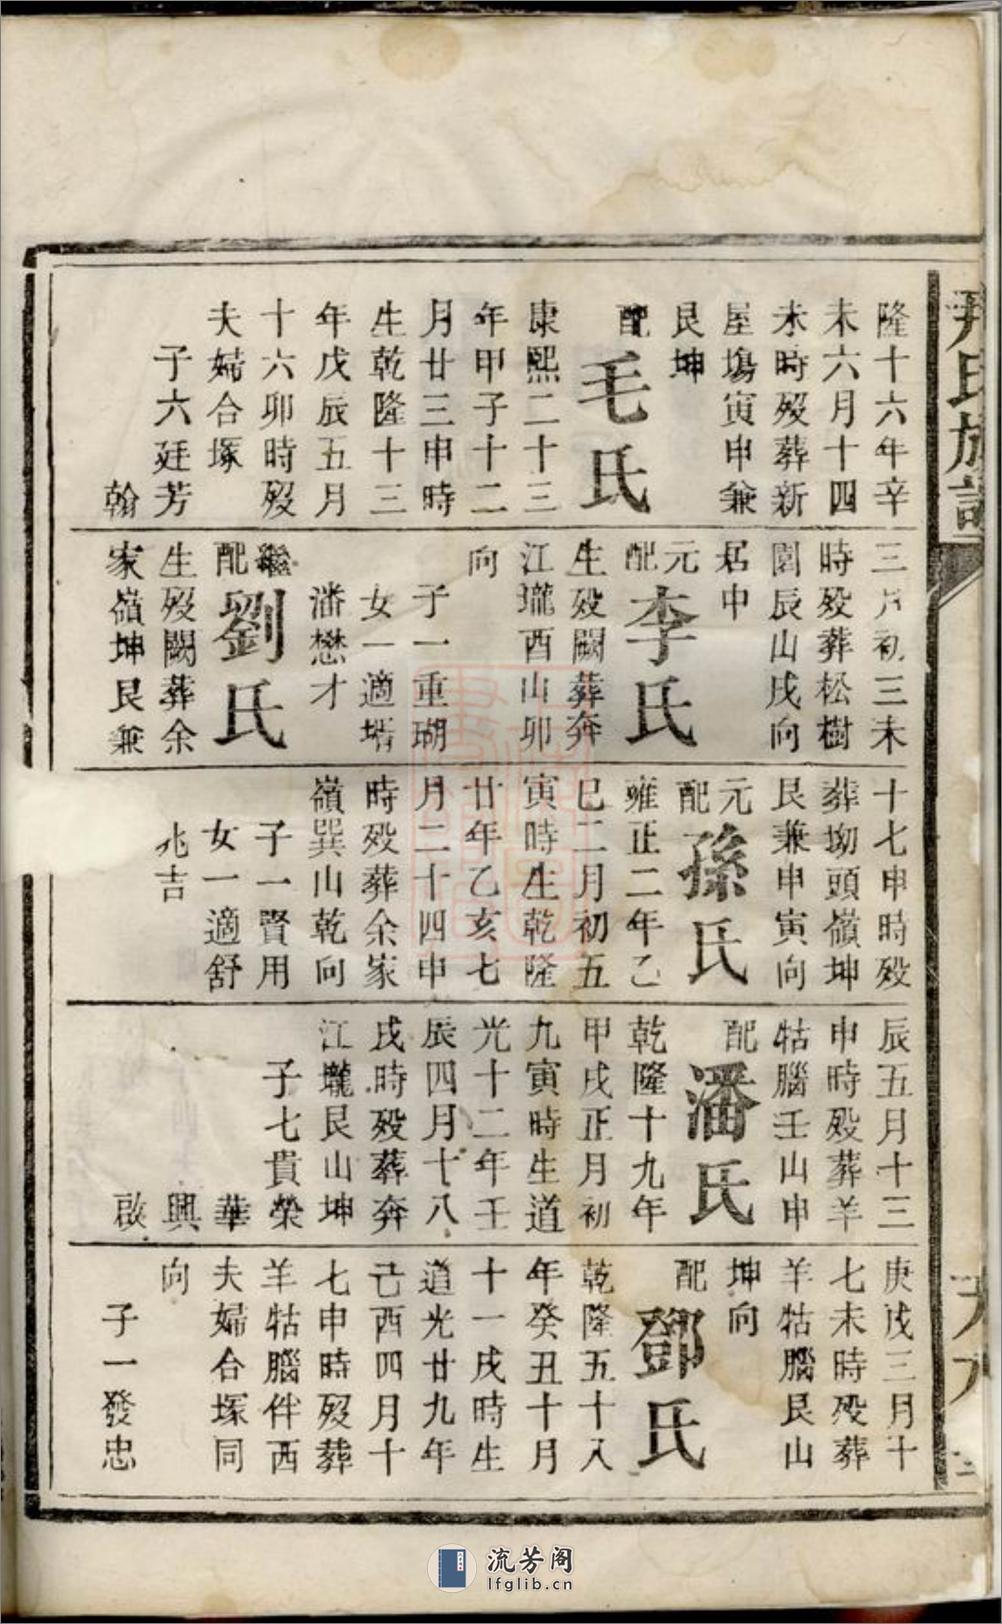 隆十六年辛
未六月十四
未時歿葬新
屋塲寅申兼
艮坤
配毛氏
康熙二十三
年甲子十二
月廿三申時
生乾隆十三
年戊辰五月
十六卯時歿
夫婦合塚
子六廷芳
翰
三月初三未
時歿葬松樹
園辰山戌向
居中
元配李氏
生歿闕葬奔
江瓏酉山卯
向
子一重瑚
女一適壻
潘懋才
繼配劉氏
生歿闕葬余
家嶺坤艮兼
十七申時歿
葬坳頭嶺坤
艮兼申寅向
元配孫氏
雍正二年乙
巳二月初五
寅時生乾隆
廿年乙亥七
月二十四申
時歿葬余家
嶺巽山乾向
子一賢用
女一適舒
兆吉
辰五月十三
申時歿葬羊
牯腦壬山申
配潘氏
乾隆十九年
甲戌正月初
九寅時生道
光十二年壬
辰四月十八
戌時歿葬奔
江壠艮山坤
子七貴榮
華
興
啟
庚戌三月十
七未時歿葬
羊牯腦艮山
坤向
配鄧氏
乾隆五十八
年癸丑十月
十一戌時生
道光廿九年
己酉四月十
七申時歿葬
羊牯腦伴西
夫婦合塚同
向
子一發忠
流芳阁
lfglib.cn